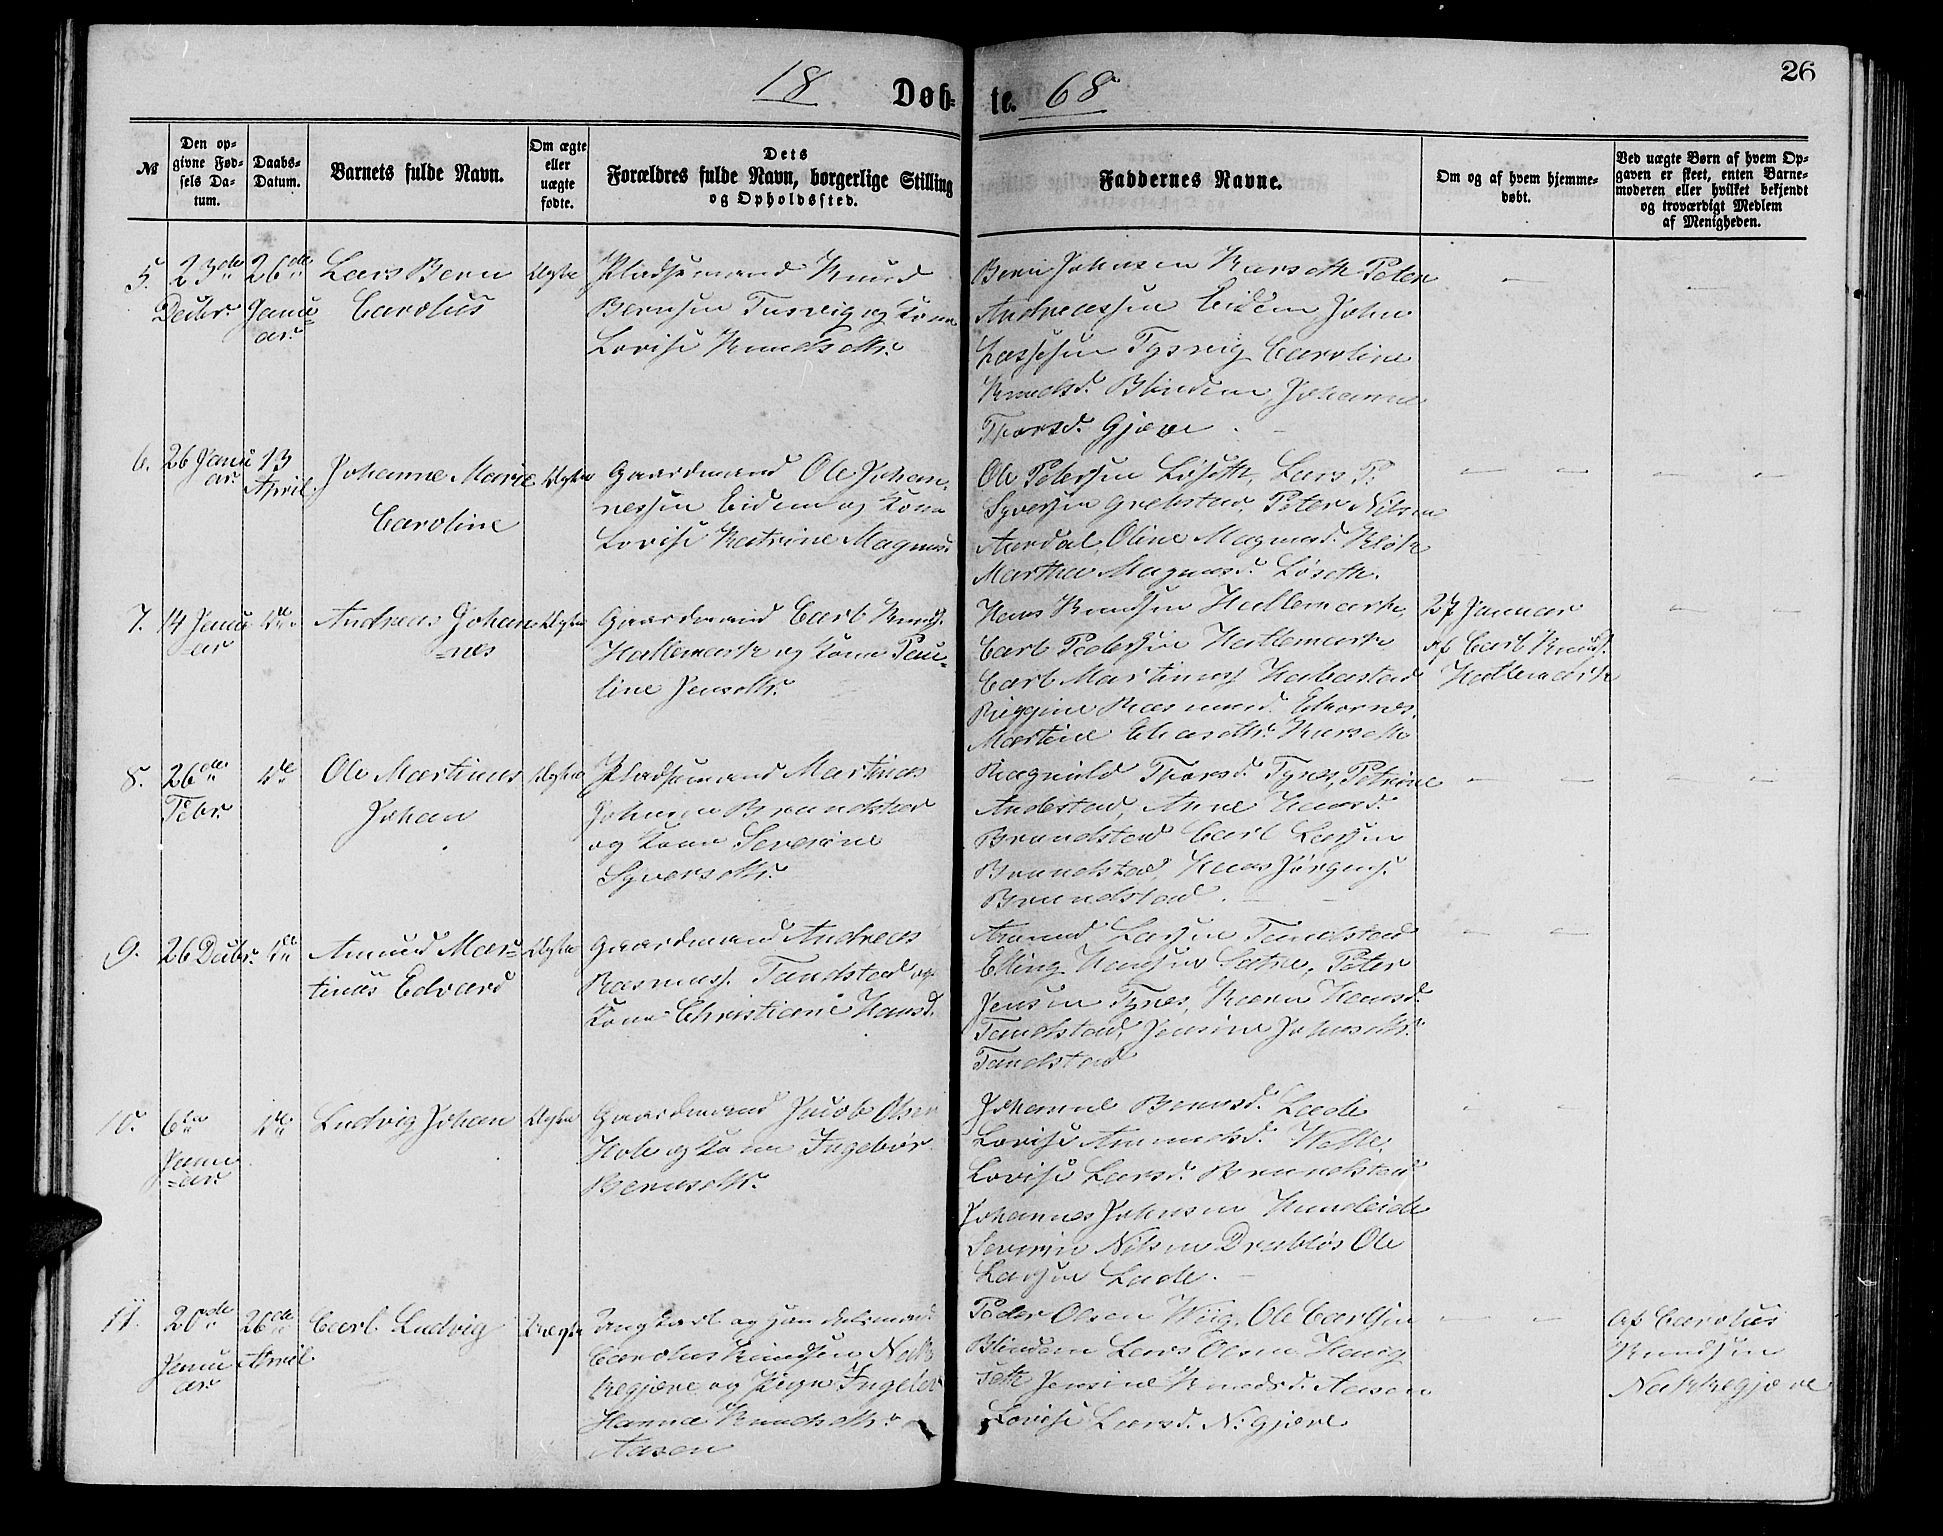 26
18 Døb-
te. 68
№
Den op-
givne Fød-
sels Da-
tum.
Daabs-
Datum.
Barnets fulde Navn.
Om ægte
eller
uægte
fødte.
Dets
Forældres fulde Navn, borgerlige Stilling
og Opholdssted.
Faddernes Navne.
Om og af hvem hjemme-
døbt.
Ved uægte Børn af hvem Op-
gaven er skeet, enten Barne-
moderen eller hvilket bekjendt
og troværdigt Medlem
af Menigheden.
5.
23de
Decbr.
26de
Janu
ar.
Lars Bern
Carolus
Ægte
Pladsemand Knud
Bernsen Tusvig og Kone
Lovise Knudsdtr.
Bern Johnsen Kurseth Peter
Andreassen Eidem John
Lassesen Tysvig Caroline
Knudsd. Blindem Johanne
Thorsd. Gjære.
6.
26 Janu
ar.
13
April
Johanne Marie
Caroline
Ægte
Gaardmand Ole Johan-
nessen Eidem og Kone
Lovise Katrine Magnusd.
Ole Petersen Løseth, Lars P.
Syversen Grebstad, Peter Nilsen
Aurdal, Oline Magnusd. Kløk
Martha Magnusd. Løseth.
7.
14 Janu
-ar
do
Andreas Johan
=nes
Ægte
Gaardmand Carl Knuds.
Hatlemark og Kone Pau-
line Jensdtr.
Hans Knudsen Hatlemark,
Carl Pedersen Hatlemark
Carl Martinus Habostad
Reggine Rasmusd. Ekornes,
Martine Eliasdtr. Kurseth
27 Januar
af Carl Knuds.
Hatlemark
8.
26de
Febr.
do
Ole Martinus
Johan
Ægte
Pladsemand Martinus
Johnsen Brundstad
og Kone Severine
Syversdtr.
Ragnild Thorsd. Tynes, Petrine
Andestad, Anne Hansd.
Brundstad Carl Larsen
Brundstad, Knus Jørgens.
Brundstad.
9.
26 Decbr.
do
Amund Mar-
tinus Edvard
Ægte
Gaardmand Andreas
Rasmuss. Tandstad og
Kone Christiane Hansd.
Amund Larsen Tandstad
Elling Hansen Sætre, Peter
Jensen Tynes, Karen Hansd.
Tandstad, Jensine Johnsdtr.
Tandstad
10.
6te
Janu
-ar.
do
Ludvig Johan
Ægte
Gaardmand Jacob Olsen
Hole og Kone Ingebør
Bernsdtr.
Johanne Bernsd. Lade
Lovise Amundsd. Welle,
Lovise Larsd. Brundstad
Johannes Johnsen Hundeide
Severin Nilsen Drabløs Ole
Larsen Lade.
11.
20de
Janu
ar.
26de
April
Carl Ludvig
Uægte
Ungkarl og Handelsmand
Carolus Knudsen Nak-
kegjære og Pige Ingebor
Hanna Knudsdtr.
Aasen
Peder Olsen Wiig, Ole Carlsen
Blindem Lars Olsen Haug
seth Jensine Knudsd. Aasen
Lovise Larsd. N. Gjære.
af Carolus
Knudsen
Nakkegjære